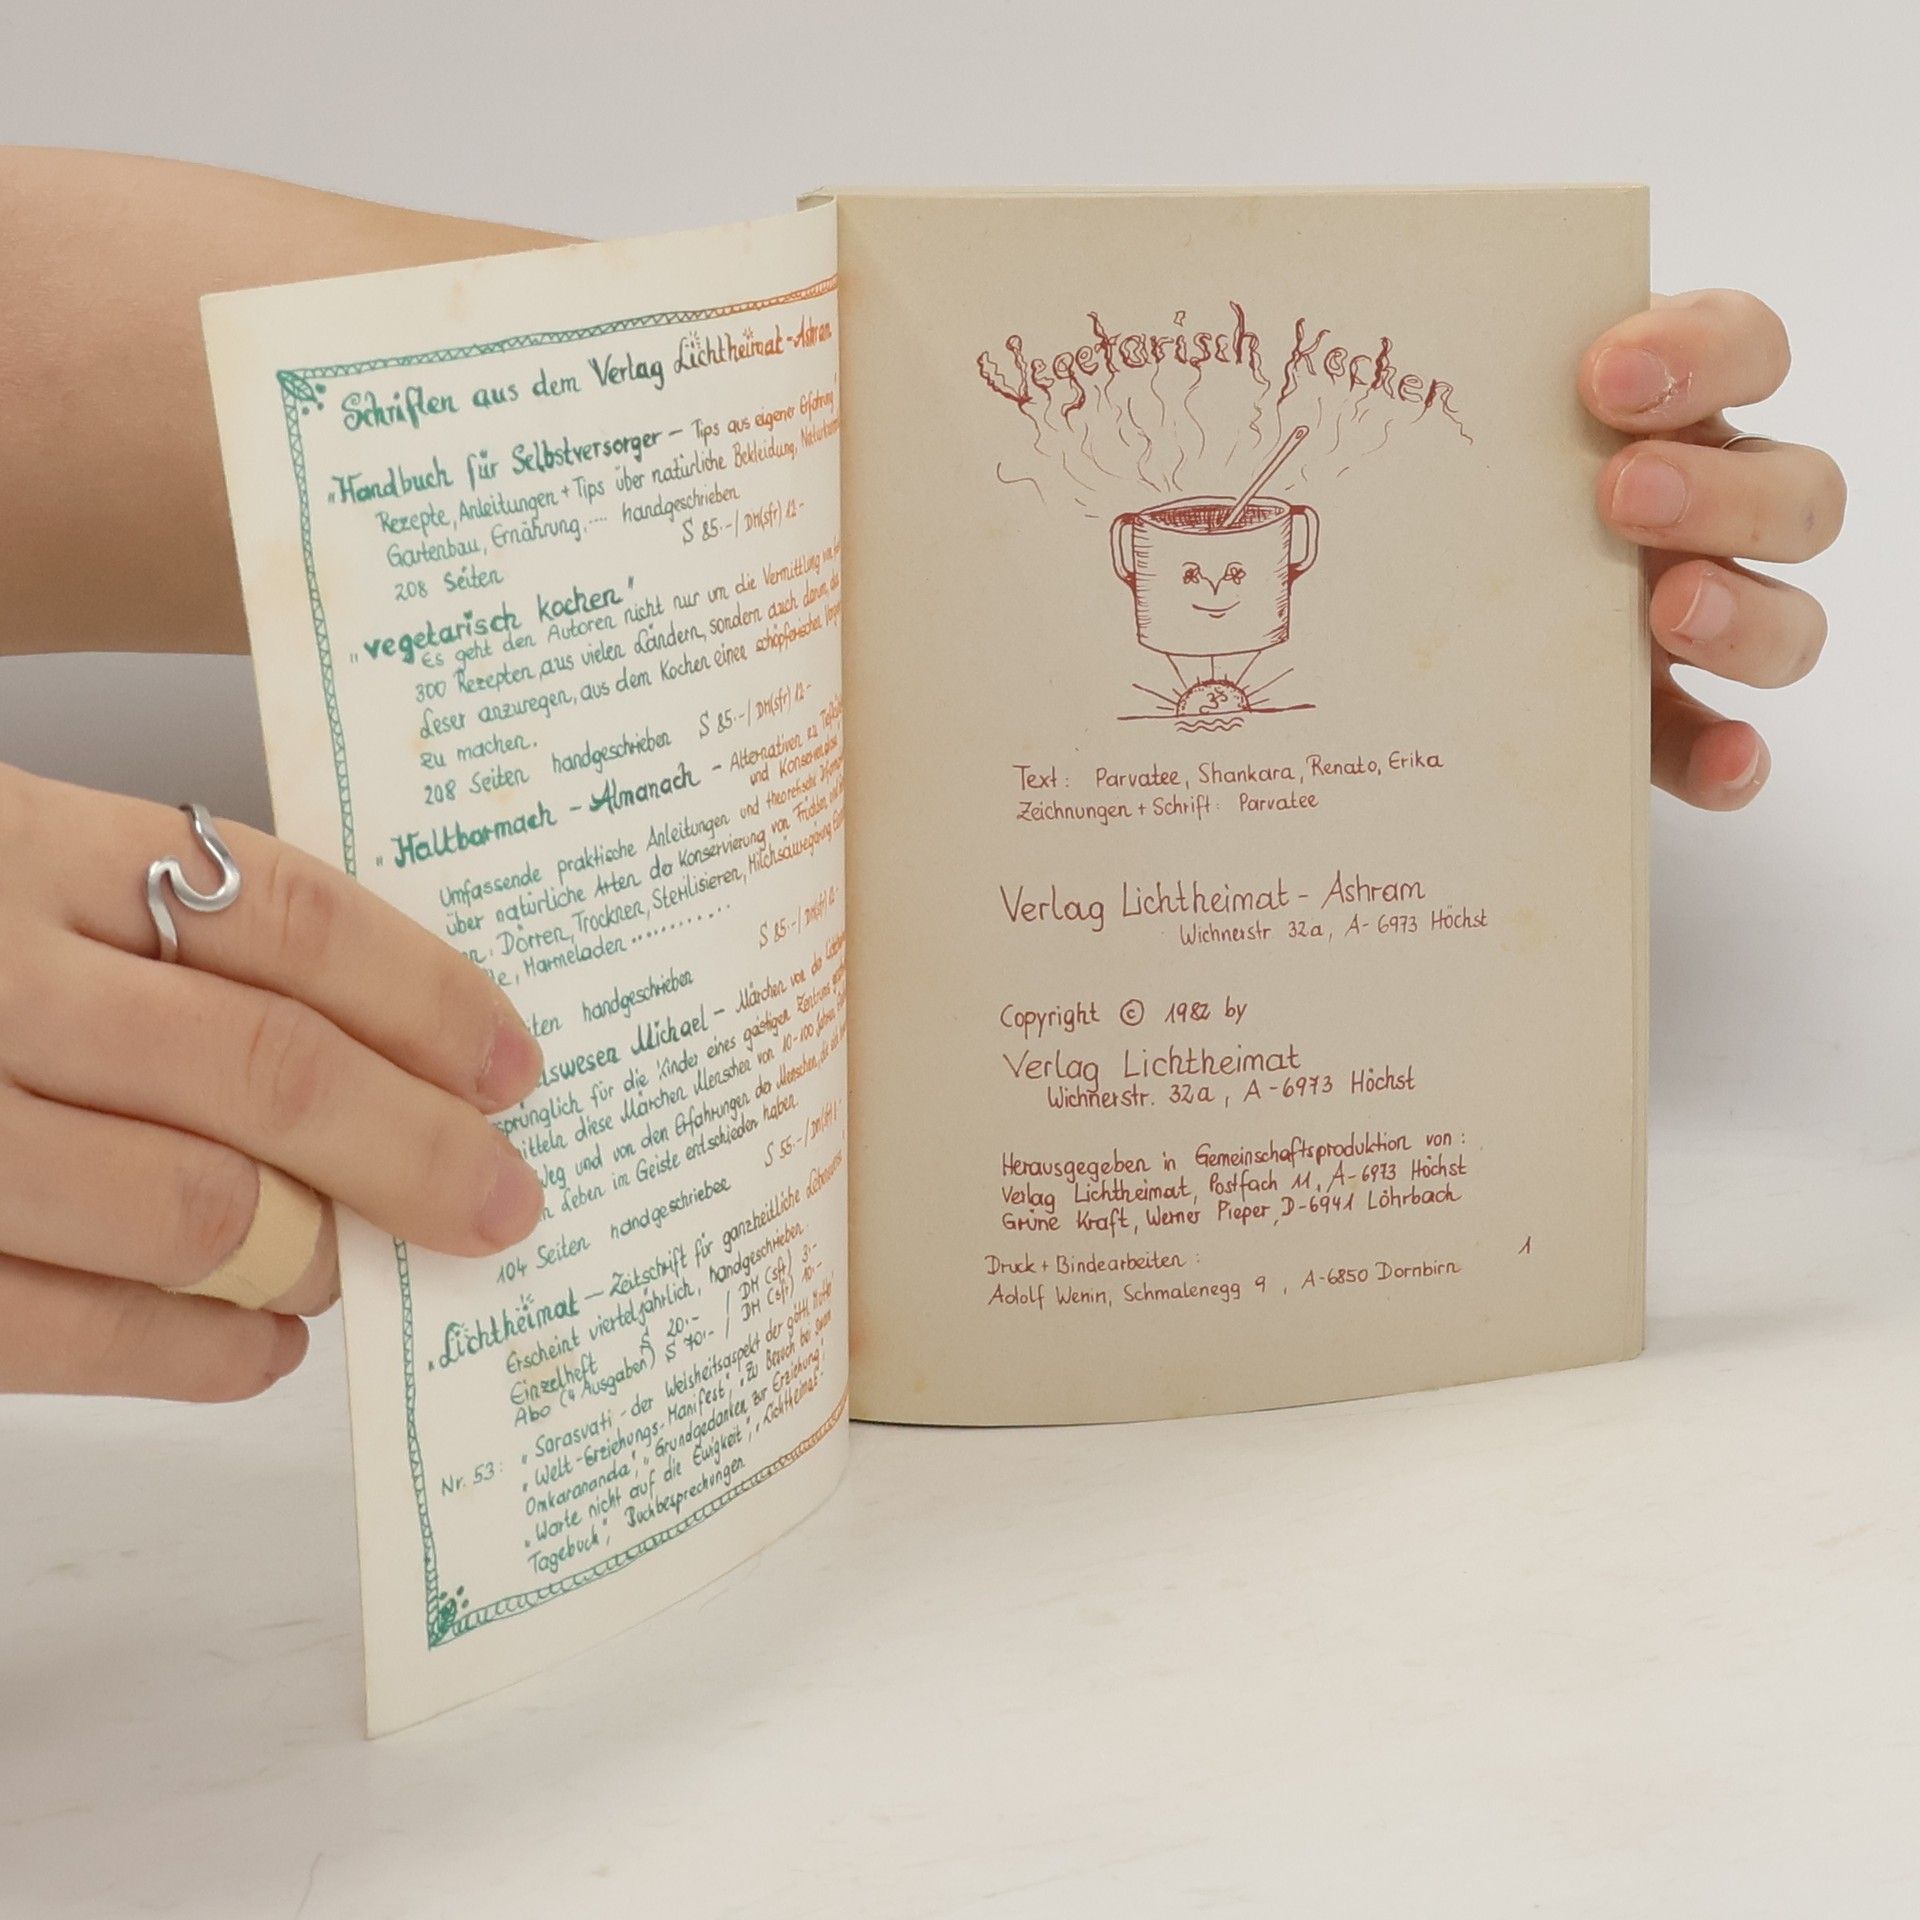 Schriften aus dem Verlag Lichtheimat-Ashram
"Handbuch für Selbstversorger – Tips aus eigener Erfahrung
Rezepte, Anleitungen + Tips über natürliche Bekleidung,
Gartenbau, Ernährung, .... handgeschrieben
208 Seiten S 85.-/ DM(sfr) 12.-
"vegetarisch kochen"
Es geht den Autoren nicht nur um die Vermittlung von
300 Rezepten aus vielen Ländern, sondern auch darum, die
Leser anzuregen, aus dem Kochen einen schöpferischen
zu machen.
208 Seiten handgeschrieben S 85.-/ DM(sfr) 12.-
"Haltbarmach – Almanach – Alternativen zu
und Konserven
Umfassende praktische Anleitungen und theoretische
über natürliche Arten der Konservierung von Früchten,
Dörren, Trocknen, Sterilisieren, Milchsäuregärung
Marmeladen ..........
handgeschrieben S 85.-/ DM(sfr) 12.-
Michael – Märchen von der
für die Kinder eines geistigen Zentrums
diese Märchen Menschen von 10-100 Jahren
Weg und von den Erfahrungen der Menschen, die sich
Leben im Geiste entschieden haben.
104 Seiten handgeschrieben S 55.-/ DM(sfr)
"Lichtheimat – Zeitschrift für ganzheitliche
Erscheint vierteljährlich, handgeschrieben.
Einzelheft S 20.- / DM (sfr) 3.-
Abo (4 Ausgaben) S 70.- / DM (sfr) 10.-
Nr. 53: "Sarasvati - der Weisheitsaspekt der göttl. Mutter"
"Welt-Erziehungs-Manifest", "Zu Besuch bei Swami
Omkarananda", "Grundgedanken zur Erziehung",
"Warte nicht auf die Ewigkeit", "Lichtheimat-
Tagebuch", Buchbesprechungen
Vegetarisch Kochen
ॐ
Text: Parvatee, Shankara, Renato, Erika
Zeichnungen + Schrift: Parvatee
Verlag Lichtheimat - Ashram
Wichnerstr 32a, A-6973 Höchst
Copyright © 1982 by
Verlag Lichtheimat
Wichnerstr. 32a, A-6973 Höchst
Herausgegeben in Gemeinschaftsproduktion von:
Verlag Lichtheimat, Postfach 11, A-6973 Höchst
Grüne Kraft, Werner Pieper, D-6941 Löhrbach
Druck + Bindearbeiten:
Adolf Wenin, Schmalenegg 9, A-6850 Dornbirn
1